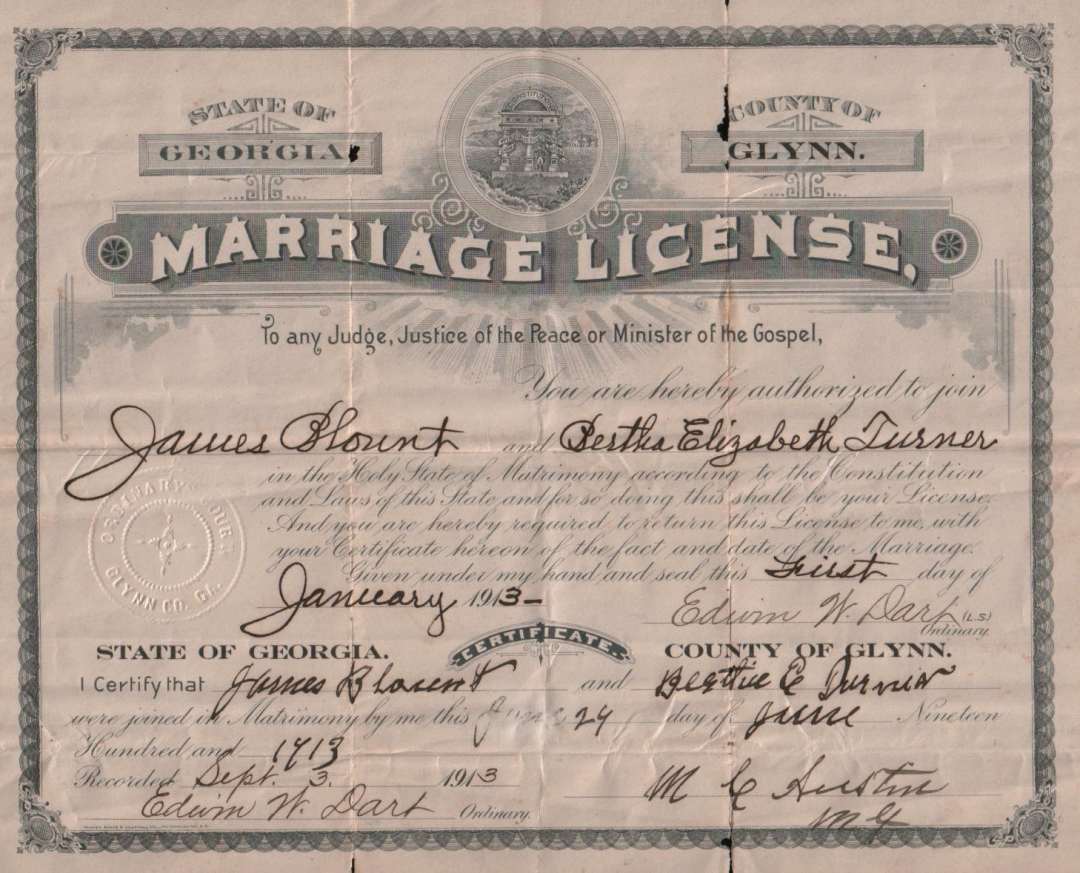 STATE OF
GEORGIA.
COUNTY OF
GLYNN.
CONSTITUTION
MARRIAGE LICENSE,
To any Judge, Justice of the Peace or Minister of the Gospel,
You are hereby authorized to join
James Blount and Bertha Elizabeth Turner
in the Holy State of Matrimony according to the Constitution
and Laws of this State and for so doing this shall be your License.
And you are hereby required to return this License to me, with
your Certificate hereon of the fact and date of the Marriage.
Given under my hand and seal this First day of
January 1913-
Edwin W. Dart (L.S)
Ordinary.
ORDINARY COURT
GLYNN CO. GA.
CERTIFICATE.
STATE OF GEORGIA. COUNTY OF GLYNN.
I Certify that James Blount and Berthie E Turner
were joined in Matrimony by me this June 24 day of June Nineteen
Hundred and 1913
Recorded Sept. 3. 1913
M C Austin
Edwin W. Dart Ordinary.
M G